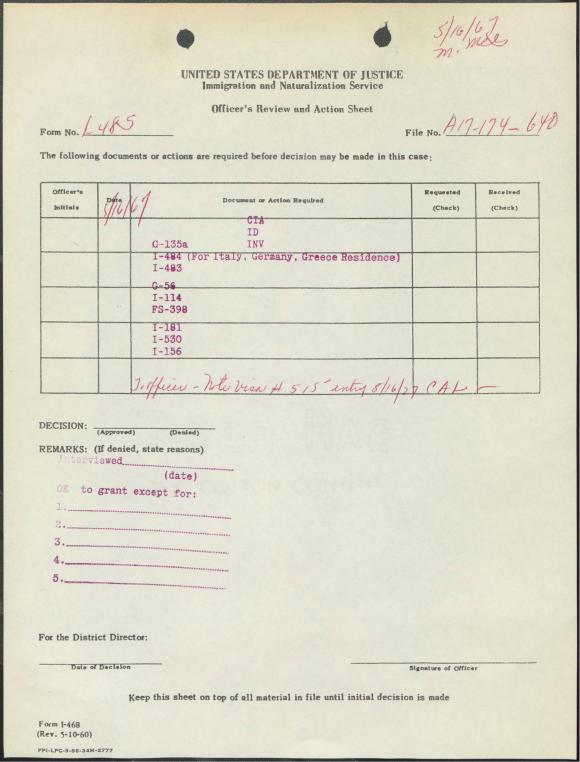 5/16/67
UNITED STATES DEPARTMENT OF JUSTICE
Immigration and Naturalization Service
Officer's Review and Action Sheet
Form No. I-485 File No. A17-174-640
The following documents or actions are required before decision may be made in this case:
Officer's Initials Date Document or Action Required Requested (Check) Received (Check)
5/16/67
CIA
ID
G-135a INV
I-484 (For Italy, Germany, Greece Residence)
I-483
G-56
I-114
FS-398
I-181
I-530
I-156
To officer - Note Visa # 515 entry 5/16/27 CAL -
DECISION:
(Approved) (Denied)
REMARKS: (If denied, state reasons)
Interviewed
(date)
OK to grant except for:
1.
2.
3.
4.
5.
For the District Director:
Date of Decision Signature of Officer
Keep this sheet on top of all material in file until initial decision is made
Form I-468
(Rev. 5-10-60)
FPI-LPC-9-66-34M-2777